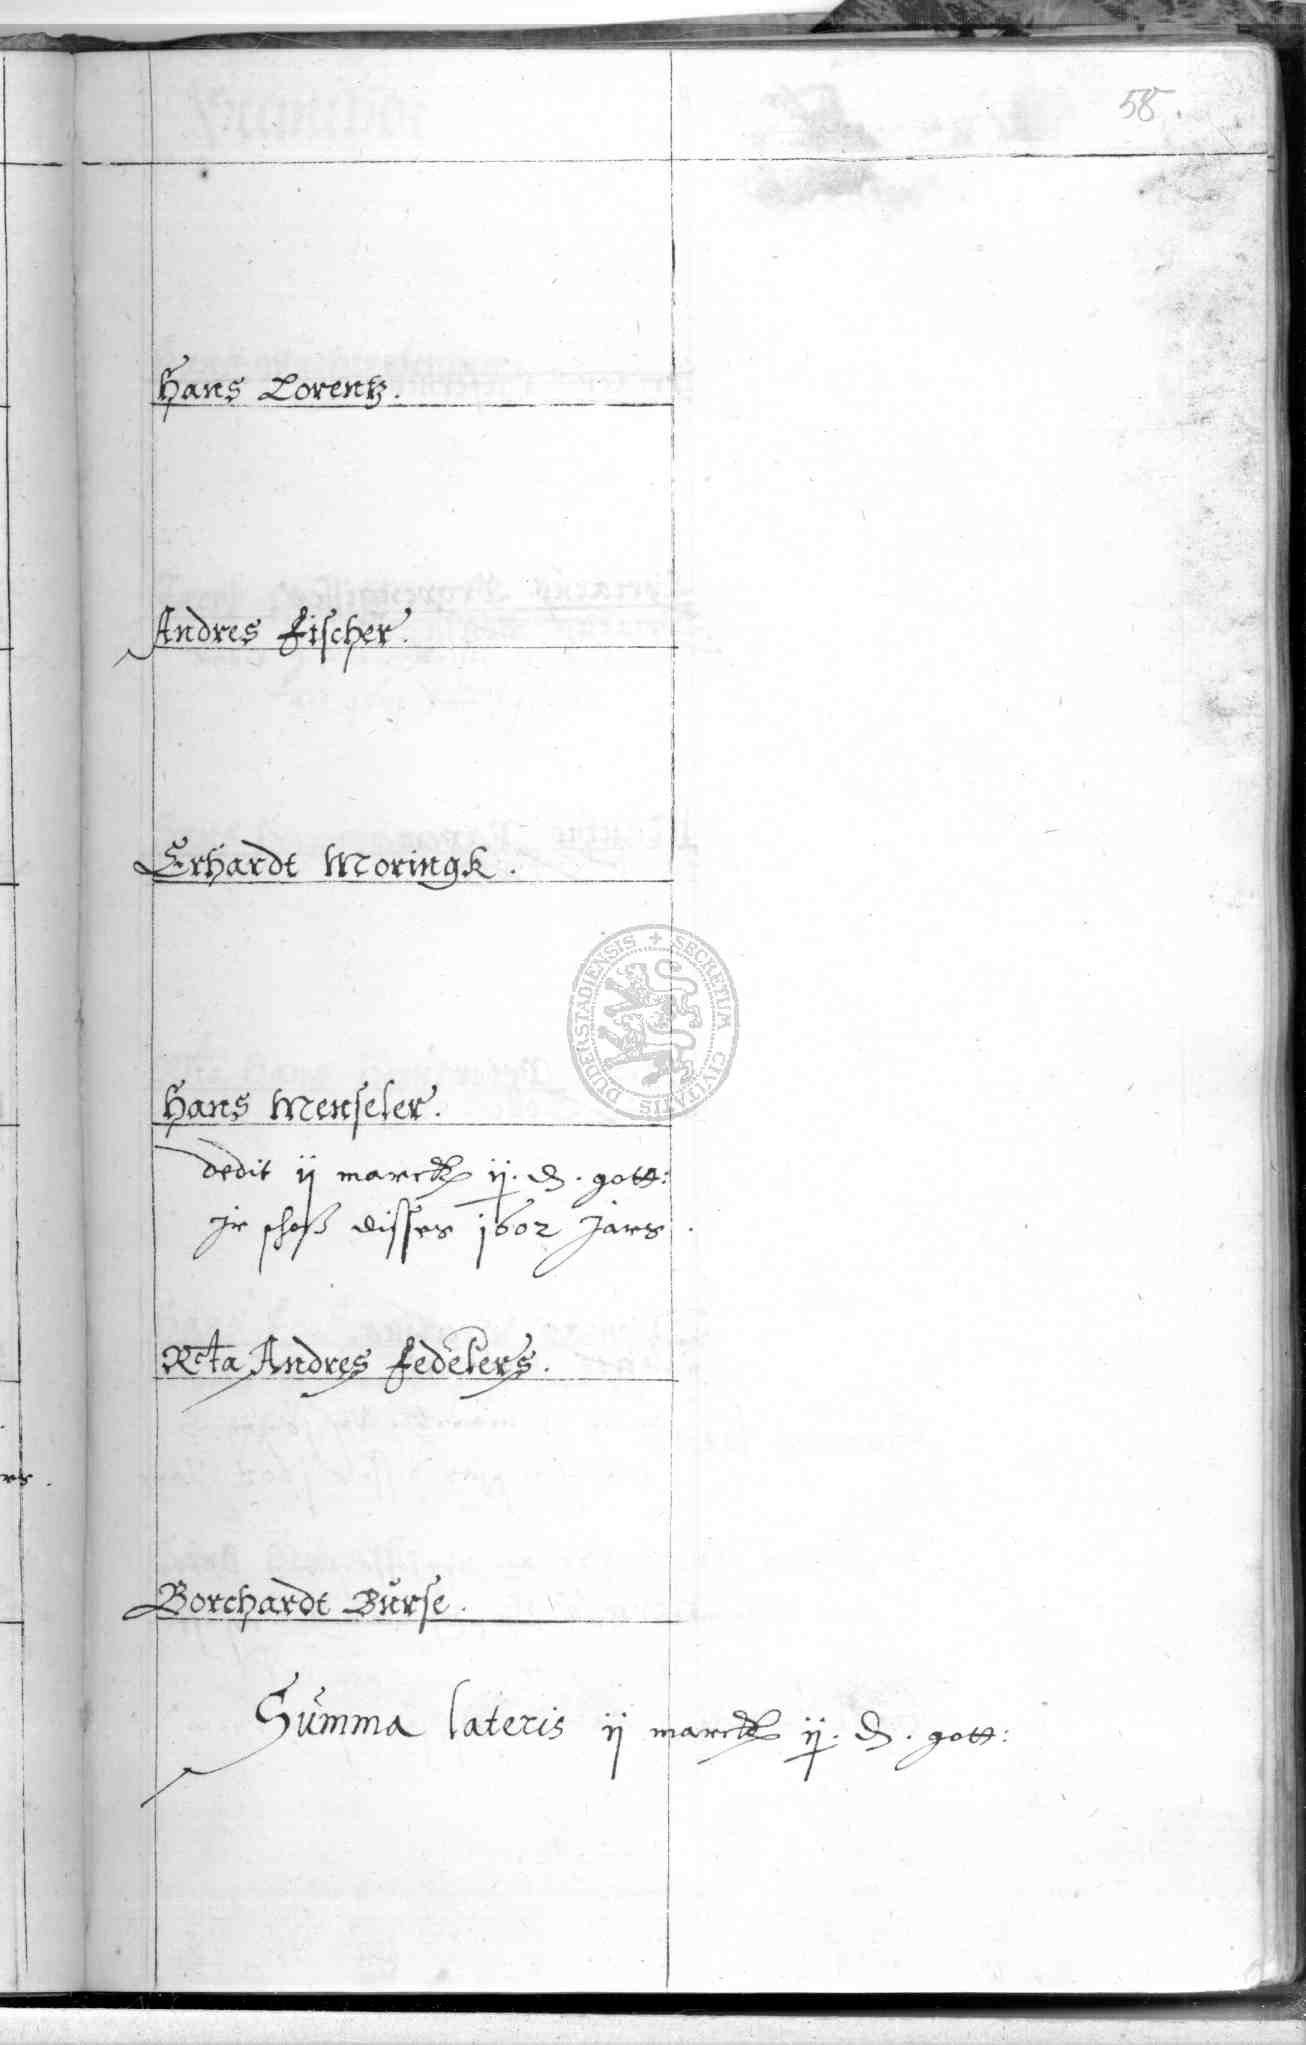 58.
Hans Lorentz.
Andres Fischer.
Erhardt Moringk.
SECRETUM CIVITATIS DUDERSTADIENSIS
Hans Menseler.
dedit ij marck ij. d. gott:
Jr schoß disses 1602 Jars.
Rcta Andres Fedelers.
Borchardt Burse.
Summa lateris ij marck ij. d. gott: